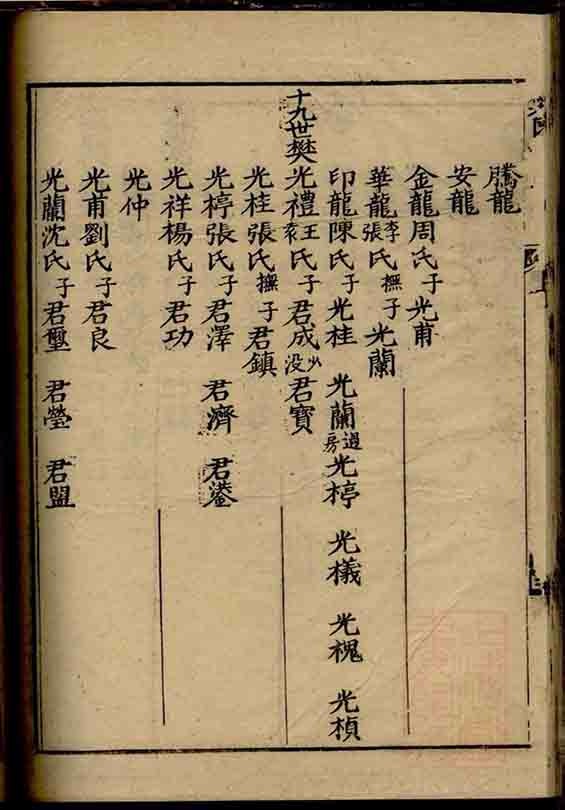 騰龍
安龍
金龍周氏子光甫
華龍李張氏撫子光蘭
印龍陳氏子光桂 光蘭過房 光楟 光檥 光槐 光楨
十九世樊光禮王氏子君成少沒君寶
光桂張氏撫子君鎮
光楟張氏子君澤 君濟 君鎣
光祥楊氏子君功
光仲
光甫劉氏子君良
光蘭沈氏子君璽 君瑩 君盟